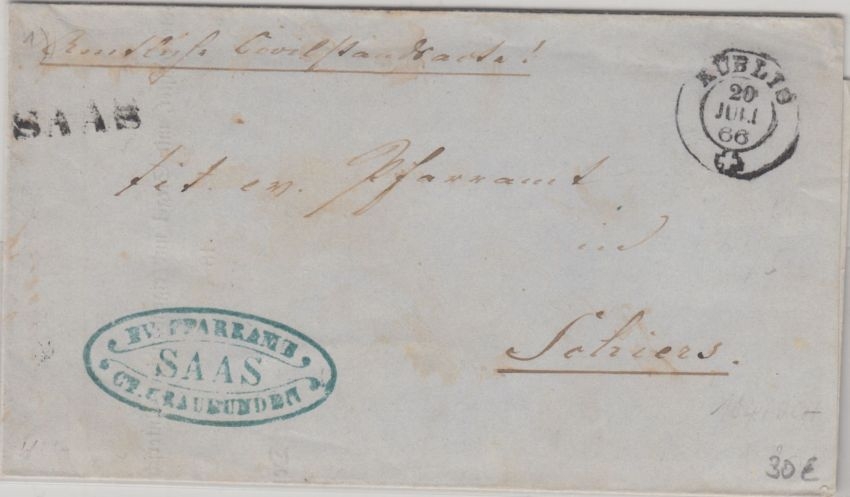 Amtliche Civilstandsacte!
SAAS
KÜBLIS
20
JULI
66
tit. ev. Pfarramt
in
Schiers.
EV. PFARRAMT
SAAS
CT. GRAUBÜNDEN
30€